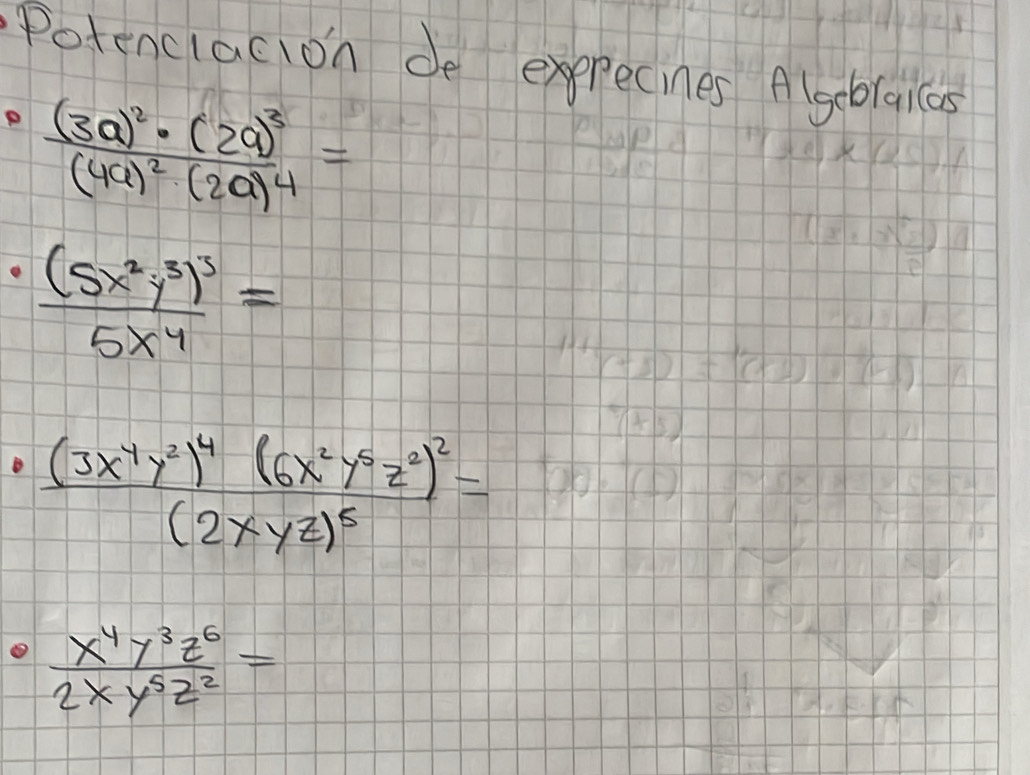 • Potenciación de exprecines Algebraicas
• (3a)² • (2a)³ / (4a)² · (2a)4 =
• (5x² y³)³ / 5x⁴ =
• (3x⁴y²)⁴ (6x²y⁵z²)² / (2xyz)⁵ =
• x⁴y³z⁶ / 2xy⁵z² =